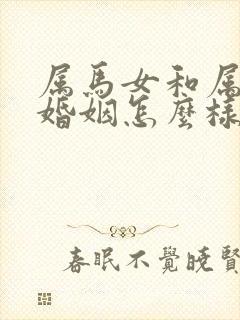 属馬女和属
婚姻怎麼様
春眠不覺曉賢